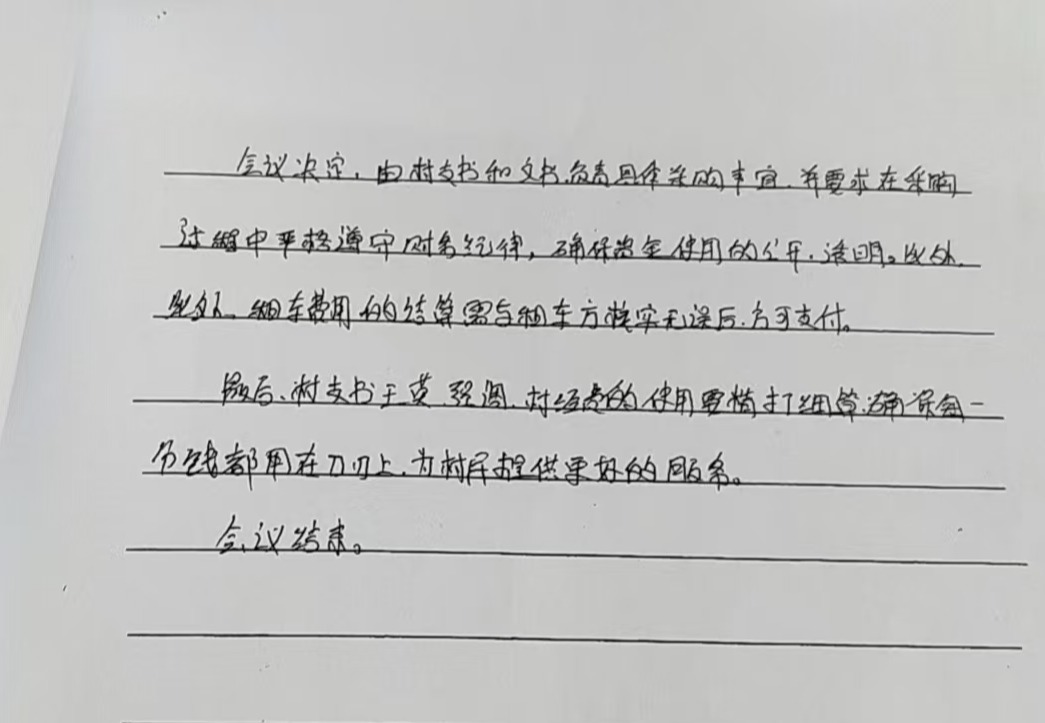 会议决定，由村支书和文书负责具体采购事宜，并要求在采购
过程中严格遵守财务纪律，确保资金使用的公开、透明。此外，
此外，租车费用的结算需与租车方核实无误后，方可支付。
最后、村支书王英强调，村经费的使用要精打细算，确保每一
分钱都用在刀刃上，为村民提供更好的服务。
会议结束。